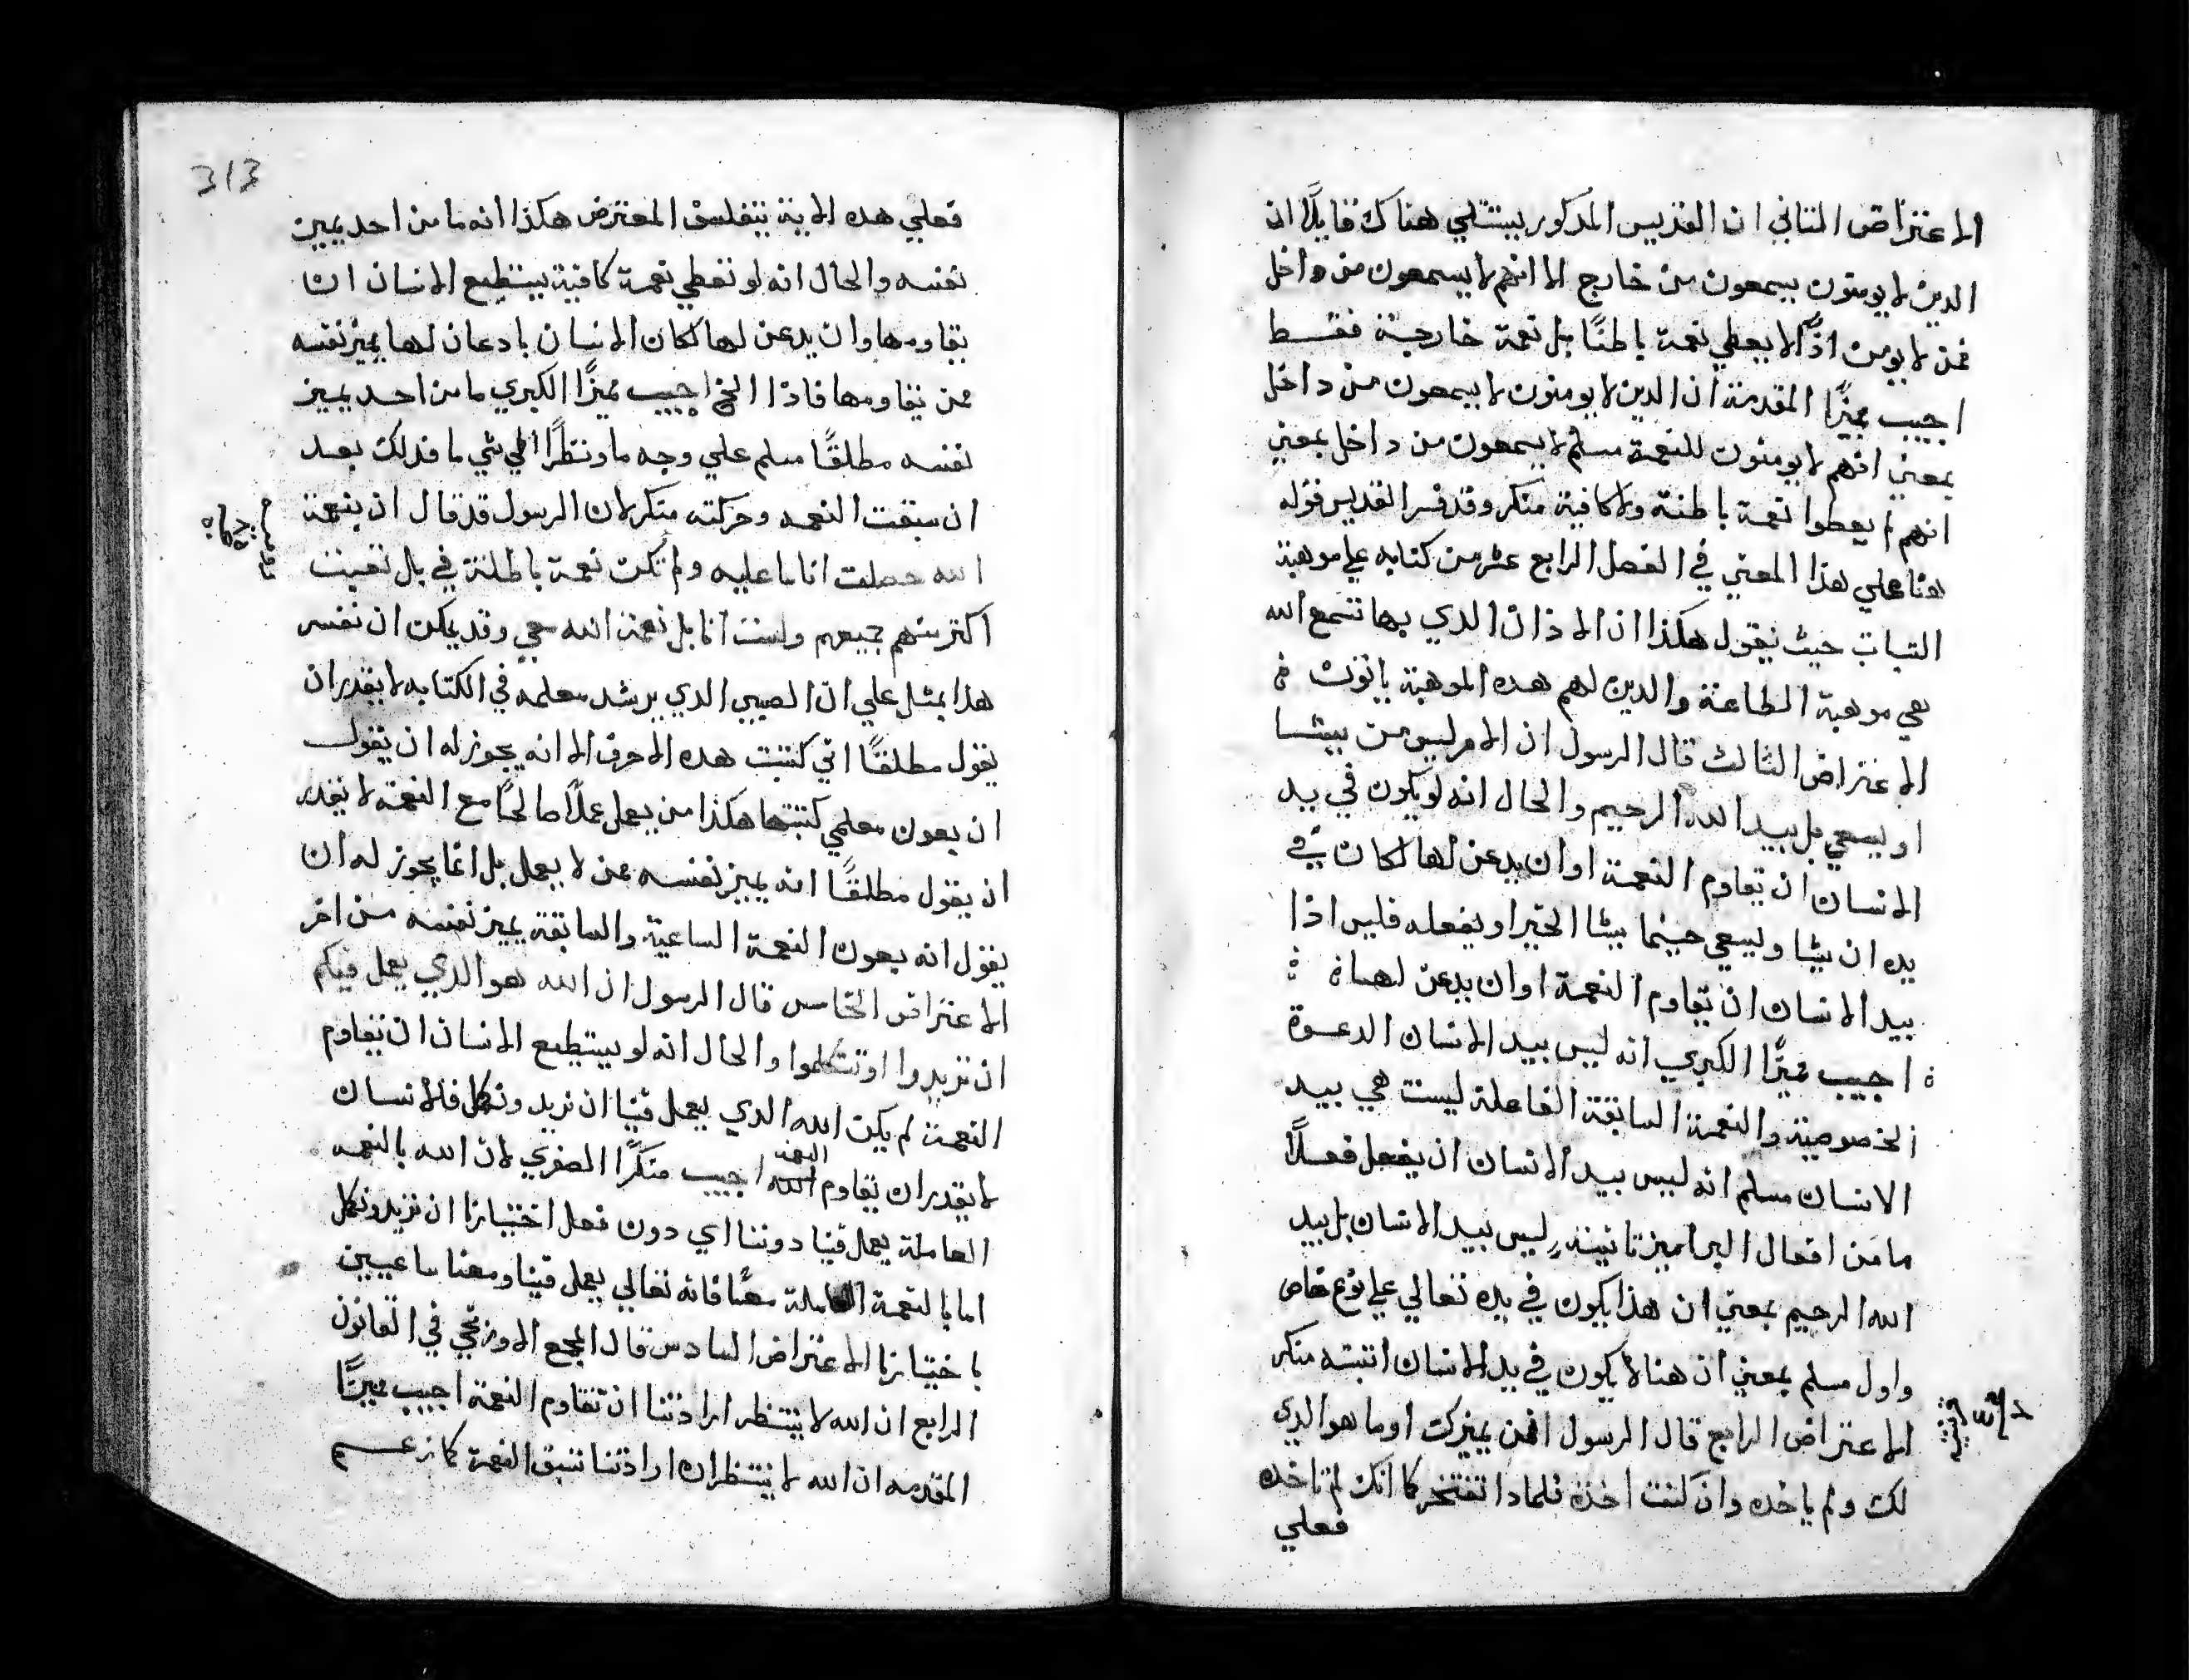 الاعتراض التاني ان القديس المدكور بيتتلي هناك قايلًا ان
الدين لا يومنون يسمعون من خارج الا انهم لا يسمعون من داخل
فمن لا يومن اذًا لا يعطي نعمة باطنًا بل نعمة خارجية فقط
اجيب مميزًا المقدمة ان الدين لا يومنون لا يسمعون من داخل
بمعني انهم لا يومنون للنعمة مسلم لا يسمعون من داخل بمعني
انهم لم يعطوا نعمة باطنة ولا كافية منكر وقد فسر القديس قوله
هنا علي هذا المعني في الفصل الرابع عشر من كتابه علي موهبة
التبات حيث يقول هكذا ان الاذان الدي بها تسمع الله
هي موهبة الطاعة والدين لهم هده الموهبة ياتون
الاعتراض الثالث قال الرسول ان الامر ليس من يشا
او يسعي بل بيد الله الرحيم والحال انه لو يكون في يد
الانسان ان يقاوم النعمة او ان يدعن لها لكان في
يده ان يشا ويسعي حينما يشا الخير او يفعله فليس اذا
بيد الانسان ان يقاوم النعمة او ان يدعن لها
اجيب مميزًا الكبري انه ليس بيد الانسان الدعوة
الخصوصية والنعمة السابقة الفاعلة ليست هي بيد
الانسان مسلم انه ليس بيد الانسان ان يفعل فعلًا
ما من افعال البر اميز تانية ليس بيد الانسان بل بيد
الله الرحيم بمعني ان هذا يكون في يده تعالي علي نوع خاص
واول مسلم بمعني ان هنا لا يكون في يد الانسان اتبته منكر
الاعتراض الرابع قال الرسول افمن يميزك او ما هو الدي
لك ولم ياخده وان كنت اخدة فلمادا تفتخر كانك لم تاخده
فعلي
313
فعلي هده الاية يتفلسف المعترض هكذا انه ما من احد يميز
نفسه والحال انه لو تعطي نعمة كافية يستطيع الانسان ان
يقاومها وان يدعن لها لكان الانسان بادعان لها يميز نفسه
ممن يقاومها فاذا الخ اجيب مميزًا الكبري ما من احد يميز
نفسه مطلقًا مسلم علي وجه ما ونظرًا الي شي ما فدلك بعد
ان سبقت النعمه وحركته منكر لان الرسول قد قال ان بنعمة
الله حصلت انا ما عليه ولم تكن نعمة باطلة في بل تعبت
اكتر منهم جميعهم ولست انا بل نعمة الله معي وقد يمكن ان نفسر
هذا بمثل علي ان الصبي الدي يرشد معلمه في الكتابه لا يقدر ان
يقول مطلقًا اني كتبت هده الاحرف الا انه يجوز له ان يقول
ان بعون معلمي كتبتها هكذا من يعمل عملًا صالحًا مع النعمة لا يقدر
ان يقول مطلقًا انه يميز نفسه ممن لا يعمل بل انما يجوز له ان
يقول انه بعون النعمة الساعية والسابقة يميز نفسه من اخر
الاعتراض الخامس قال الرسول ان الله هو الدي يعمل فيكم
ان تريدوا او تتكلموا والحال انه لو يستطيع الانسان ان يقاوم
النعمة لم يكن الله الدي يعمل فينا ان نريد ونكمل فالانسان
النعمة
لا يقدر ان يقاوم الله اجيب منكرًا الصغري لان الله بالنعمه
العاملة يعمل فينا دوننا اي دون فعل اختيارنا ان نريد ونكمل
اما بالنعمة العاملة معنًا فانه تعالي يعمل فينا ومعنا ساعيين
باختيارنا الاعتراض السادس قال المجمع الاورنجي في القانون
الرابع ان الله لا ينتظر ارادتنا ان تقاوم النعمة اجيب مميزًا
المقدمه ان الله لا ينتظر ان ارادتنا تسبق النعمة كما زعم